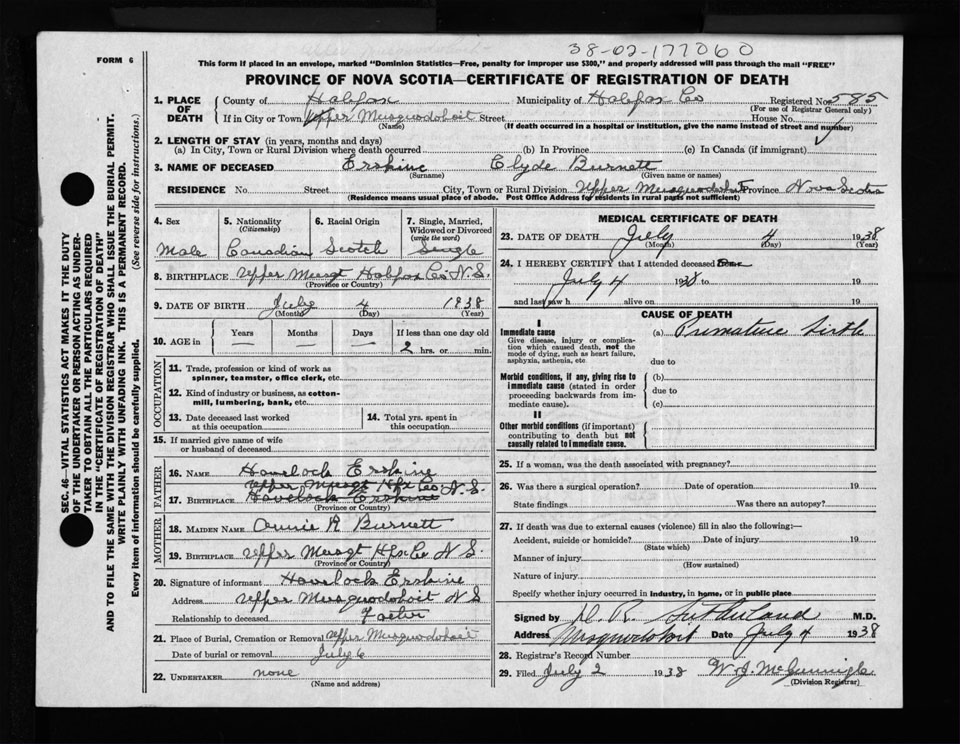 38-02-177060
FORM 6
This form if placed in an envelope, marked "Dominion Statistics—Free, penalty for improper use $300," and properly addressed will pass through the mail "FREE"
PROVINCE OF NOVA SCOTIA—CERTIFICATE OF REGISTRATION OF DEATH
SEC. 46—VITAL STATISTICS ACT MAKES IT THE DUTY
OF THE UNDERTAKER OR PERSON ACTING AS UNDER-
TAKER TO OBTAIN ALL THE PARTICULARS REQUIRED
IN THE "CERTIFICATE OF REGISTRATION OF DEATH"
AND TO FILE THE SAME WITH THE DIVISION REGISTRAR WHO SHALL ISSUE THE BURIAL PERMIT.
WRITE PLAINLY WITH UNFADING INK. THIS IS A PERMANENT RECORD.
Every item of information should be carefully supplied. (See reverse side for instructions.)
1. PLACE OF DEATH County of Halifax Municipality of Halifax Co Registered No. 585
(For use of Registrar General only)
If in City or Town Upper Musquodoboit Street House No.
(Name) (If death occurred in a hospital or institution, give the name instead of street and number)
2. LENGTH OF STAY (in years, months and days)
(a) In City, Town or Rural Division where death occurred (b) In Province (c) In Canada (if immigrant)
3. NAME OF DECEASED Erskine Clyde Burnett
(Surname) (Given name or names)
RESIDENCE No. Street City, Town or Rural Division Upper Musquodoboit Province Nova Scotia
(Residence means usual place of abode. Post Office Address for residents in rural parts not sufficient)
4. Sex 5. Nationality (Citizenship) 6. Racial Origin 7. Single, Married, Widowed or Divorced (write the word)
Male Canadian Scotch Single
8. BIRTHPLACE Upper Musqt Halifax Co N.S.
(Province or Country)
9. DATE OF BIRTH July 4 1938
(Month) (Day) (Year)
10. AGE in Years Months Days If less than one day old
— — — 2 hrs. or min.
OCCUPATION
11. Trade, profession or kind of work as spinner, teamster, office clerk, etc.
12. Kind of industry or business, as cotton-mill, lumbering, bank, etc.
13. Date deceased last worked at this occupation 14. Total yrs. spent in this occupation
15. If married give name of wife or husband of deceased
FATHER
16. NAME Havelock Erskine
Upper Musqt Hfx Co N.S.
17. BIRTHPLACE Havelock Erskine
(Province or Country)
MOTHER
18. MAIDEN NAME Annie A Burnett
19. BIRTHPLACE Upper Musqt Hfx Co N.S.
(Province or Country)
20. Signature of informant Havelock Erskine
Address Upper Musquodoboit N S
Relationship to deceased Father
21. Place of Burial, Cremation or Removal Upper Musquodoboit
Date of burial or removal July 6
22. UNDERTAKER none
(Name and address)
MEDICAL CERTIFICATE OF DEATH
23. DATE OF DEATH July 4 1938
(Month) (Day) (Year)
24. I HEREBY CERTIFY that I attended deceased from
July 4 1938 to 19
and last saw h alive on 19
CAUSE OF DEATH
I
Immediate cause (a) Premature birth
Give disease, injury or complica-
tion which caused death, not the
mode of dying, such as heart failure,
asphyxia, asthenia, etc. due to
Morbid conditions, if any, giving rise to (b)
immediate cause (stated in order due to
proceeding backwards from im-
mediate cause). (c)
II
Other morbid conditions (if important)
contributing to death but not
causally related to immediate cause.
25. If a woman, was the death associated with pregnancy?
26. Was there a surgical operation? Date of operation 19
State findings Was there an autopsy?
27. If death was due to external causes (violence) fill in also the following:—
Accident, suicide or homicide? Date of injury 19
(State which)
Manner of injury
(How sustained)
Nature of injury
Specify whether injury occurred in industry, in home, or in public place
Signed by D. R. Sutherland M.D.
Address Musquodoboit Date July 4 1938
28. Registrar's Record Number
29. Filed July 2 1938 W. J. McGunnigle
(Division Registrar)